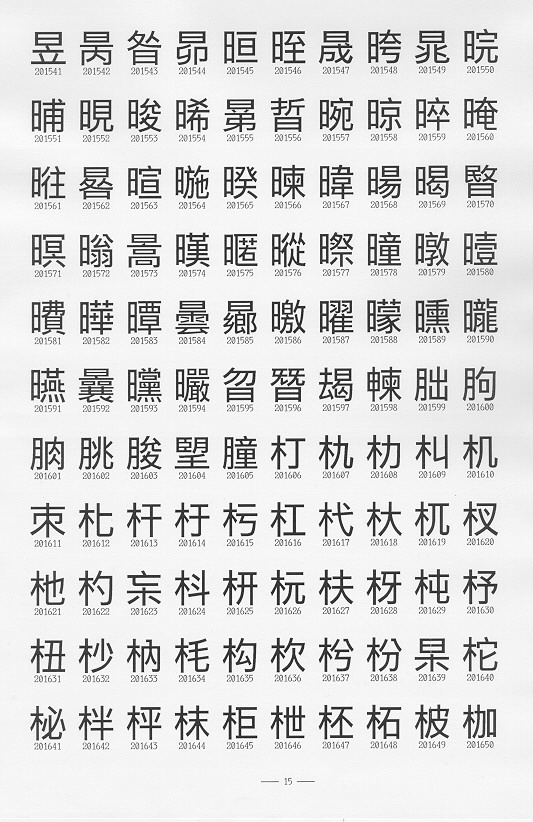 昱 昺 昝 昴 晅 晊 晟 晇 晁 晥
201541 201542 201543 201544 201545 201546 201547 201548 201549 201550
晡 晛 晙 晞 晜 晢 晼 晾 晬 晻
201551 201552 201553 201554 201555 201556 201557 201558 201559 201560
暀 晷 暄 暆 暌 暕 暐 暘 暍 暋
201561 201562 201563 201564 201565 201566 201567 201568 201569 201570
暝 暡 暠 暵 暱 暰 暩 曈 暾 曀
201571 201572 201573 201574 201575 201576 201577 201578 201579 201580
曊 曄 曋 曇 曏 曒 曜 曚 曛 曨
201581 201582 201583 201584 201585 201586 201587 201588 201589 201590
曣 曩 曭 曮 曶 朁 朅 朄 朏 朐
201591 201592 201593 201594 201595 201596 201597 201598 201599 201600
朒 朓 朘 朢 朣 朾 朹 朸 朻 机
201601 201602 201603 201604 201605 201606 201607 201608 201609 201610
朿 朼 杆 杅 杇 杠 杙 杕 杌 杈
201611 201612 201613 201614 201615 201616 201617 201618 201619 201620
杝 杓 杗 枓 枅 杬 枎 枒 杶 杼
201621 201622 201623 201624 201625 201626 201627 201628 201629 201630
杻 杪 枘 枆 构 杴 枍 枌 杲 柁
201631 201632 201633 201634 201635 201636 201637 201638 201639 201640
柲 柈 枰 枺 柜 枻 柸 柘 柀 枷
201641 201642 201643 201644 201645 201646 201647 201648 201649 201650
15